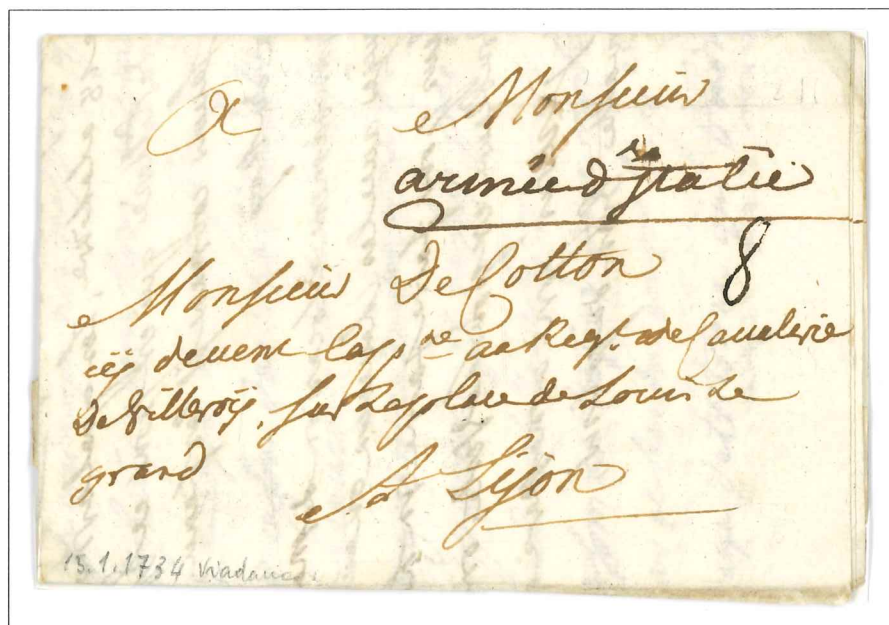 A Monsieur
armée d'Italie
8
Monsieur De Cotton
cÿ devent Capne au Regt. de Cavalerie
De Villeroÿ, sur La place de Louis Le
grand
A Lÿon
15.1.1734 Viadana